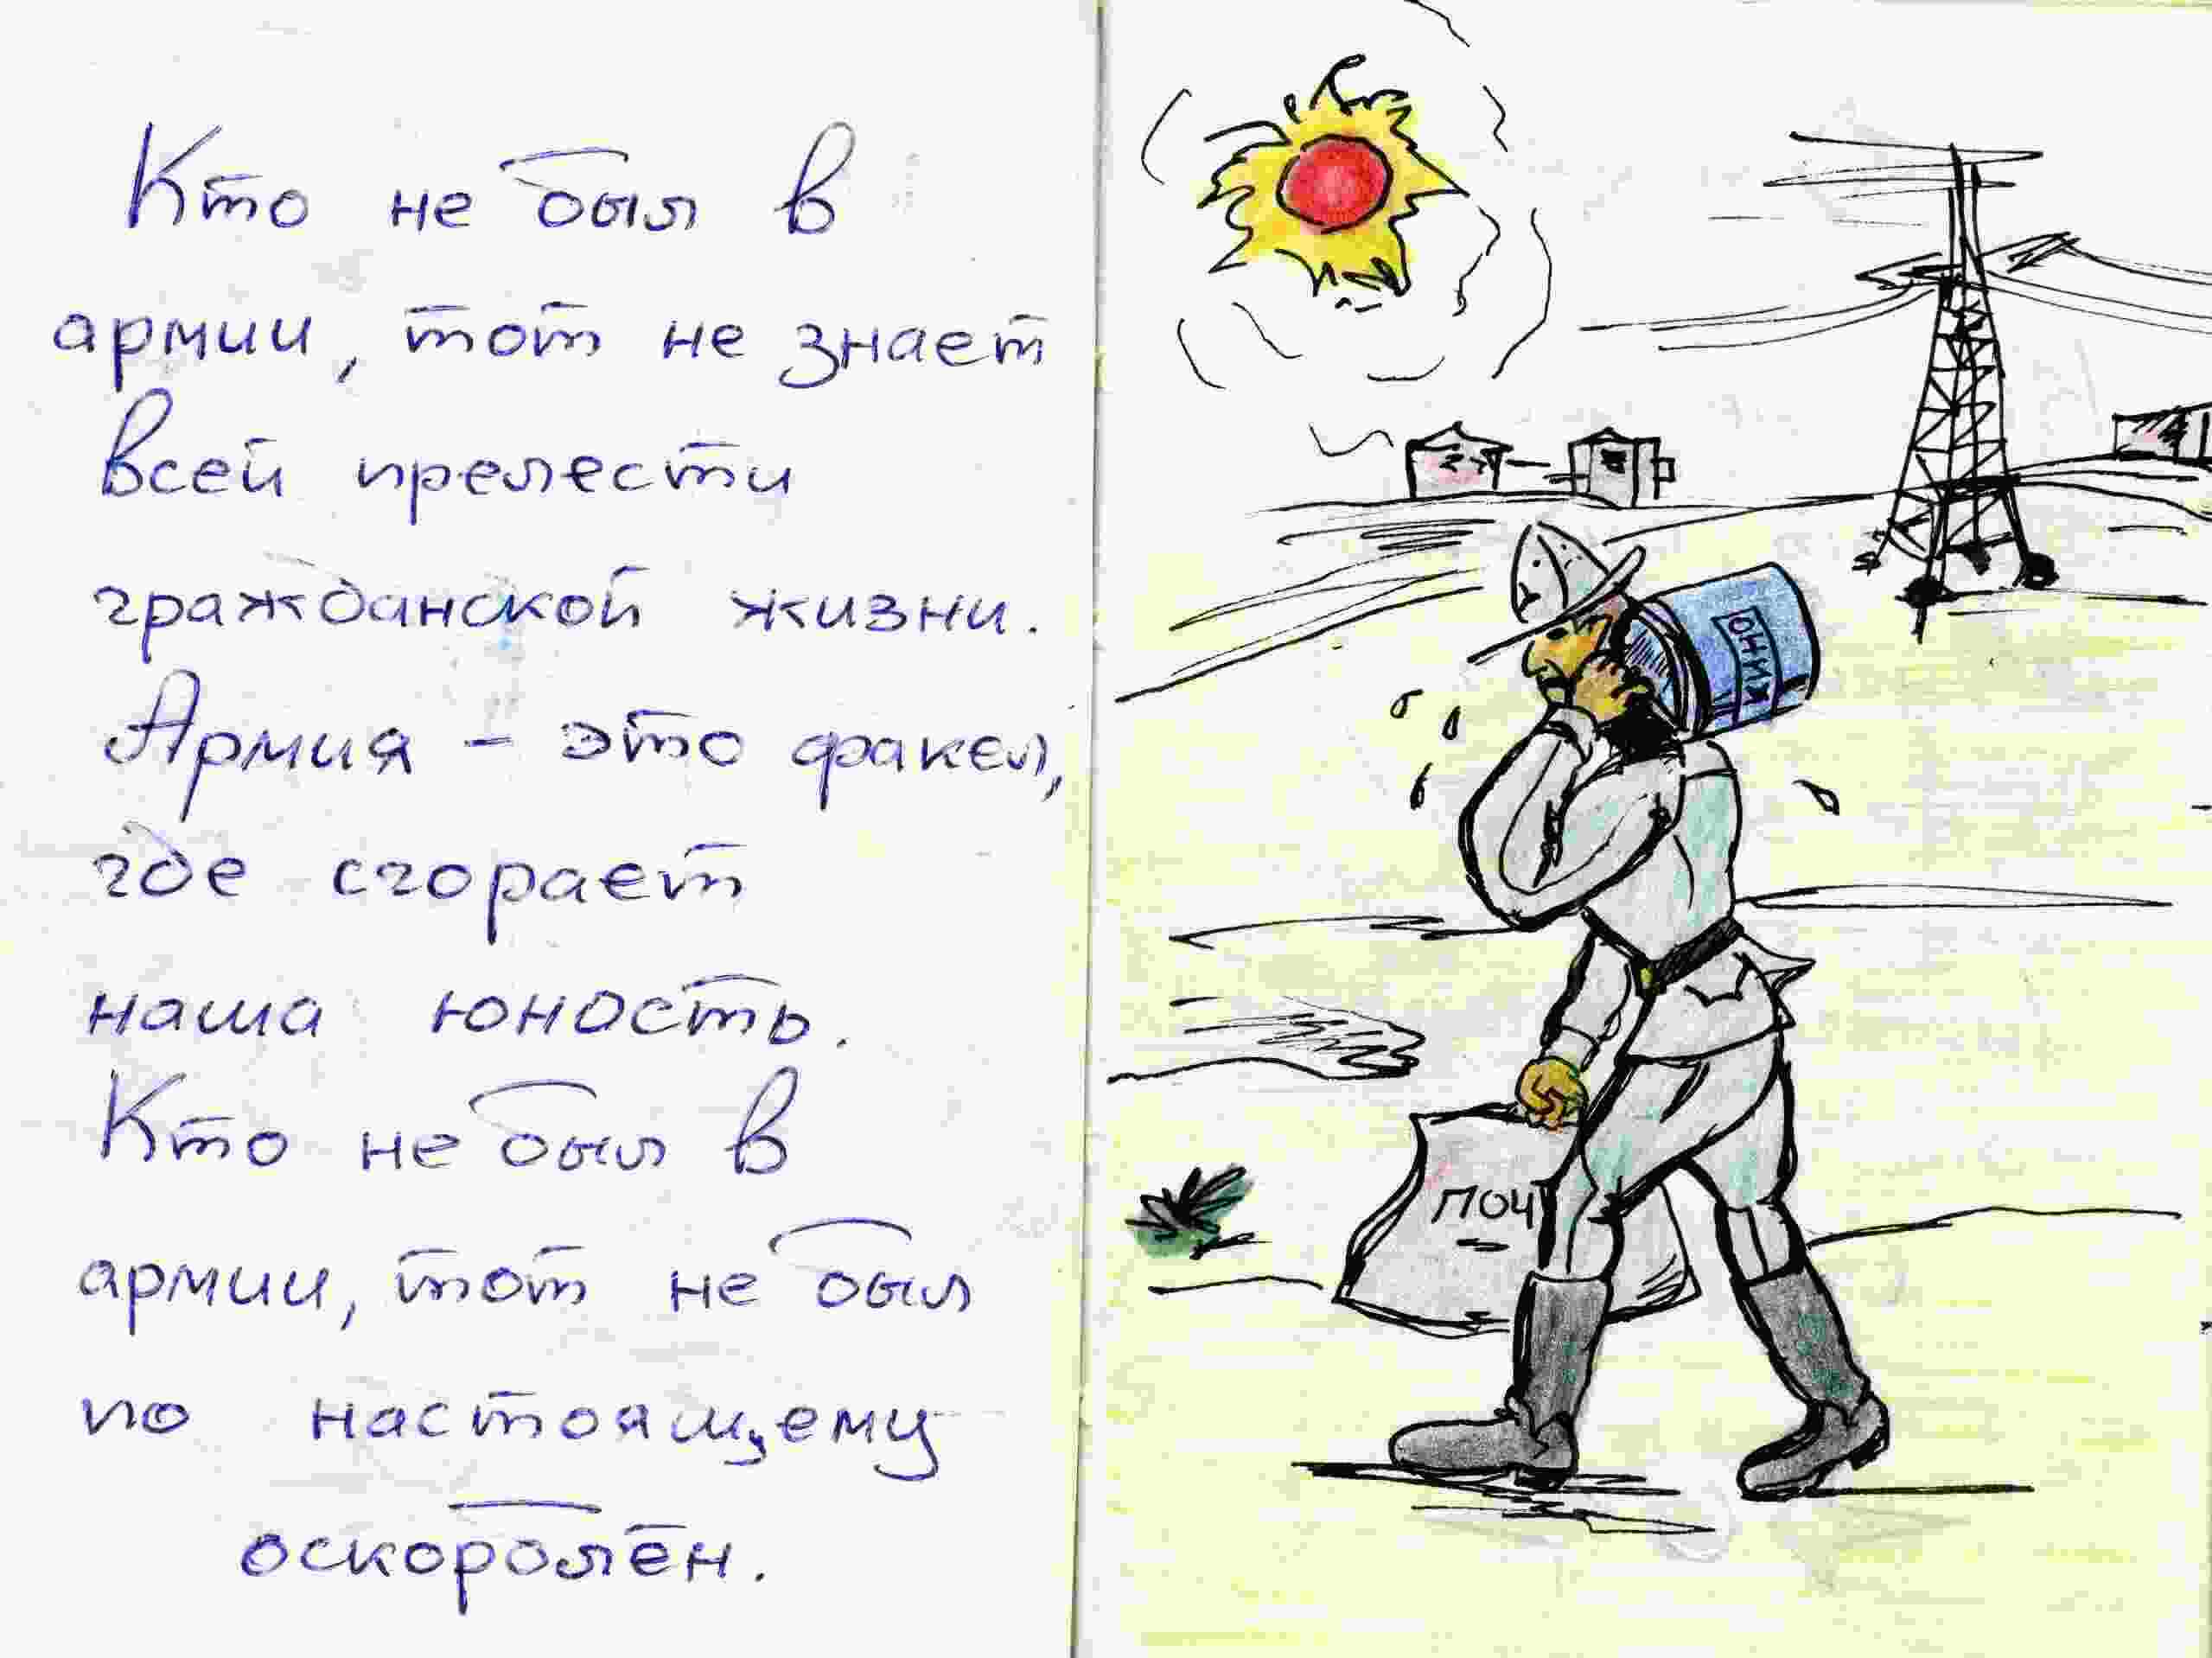 Кто не был в
армии, тот не знает
всей прелести
гражданской жизни.
Армия – это факел,
где сгорает
наша юность.
Кто не был в
армии, тот не был
по настоящему
оскорблён.
КИНО
ПОЧ